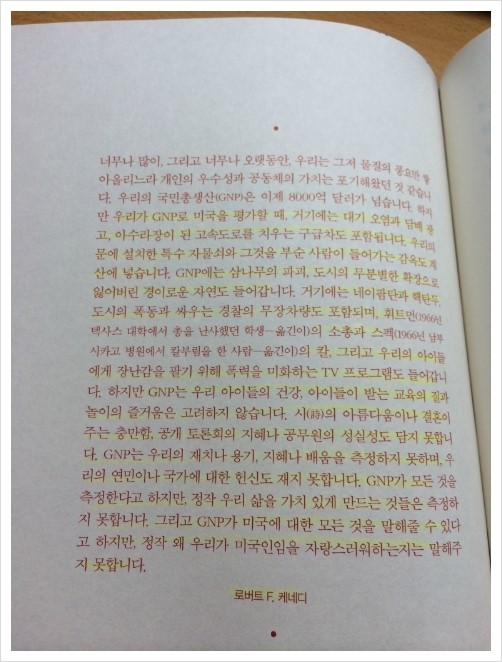 너무나 많이, 그리고 너무나 오랫동안, 우리는 그저 물질의 풍요만
아울리느라 개인의 우수성과 공동체의 가치는 포기해왔던 것 같습니
다. 우리의 국민총생산(GNP)은 이제 8000억 달러가 넘습니다. 하지
만 우리가 GNP로 미국을 평가할 때, 거기에는 대기 오염과 담배 광
고, 아수라장이 된 고속도로를 치우는 구급차도 포함됩니다. 우리의
문에 설치한 특수 자물쇠와 그것을 부순 사람이 들어가는 감옥도 계
산에 넣습니다. GNP에는 삼나무의 파괴, 도시의 무분별한 확장으로
잃어버린 경이로운 자연도 들어갑니다. 거기에는 네이팜탄과 핵탄두,
도시의 폭동과 싸우는 경찰의 무장차량도 포함되며, 휘트먼(1966년
텍사스 대학에서 총을 난사했던 학생—옮긴이)의 소총과 스펙(1966년 남부
시카고 병원에서 칼부림을 한 사람—옮긴이)의 칼, 그리고 우리의 아이들
에게 장난감을 팔기 위해 폭력을 미화하는 TV 프로그램도 들어갑니
다. 하지만 GNP는 우리 아이들의 건강, 아이들이 받는 교육의 질과
놀이의 즐거움은 고려하지 않습니다. 시(詩)의 아름다움이나 결혼이
주는 충만함, 공개 토론회의 지혜나 공무원의 성실성도 담지 못합니
다. GNP는 우리의 재치나 용기, 지혜나 배움을 측정하지 못하며, 우
리의 연민이나 국가에 대한 헌신도 재지 못합니다. GNP가 모든 것을
측정한다고 하지만, 정작 우리 삶을 가치 있게 만드는 것들은 측정하
지 못합니다. 그리고 GNP가 미국에 대한 모든 것을 말해줄 수 있다
고 하지만, 정작 왜 우리가 미국인임을 자랑스러워하는지는 말해주
지 못합니다.
로버트 F. 케네디